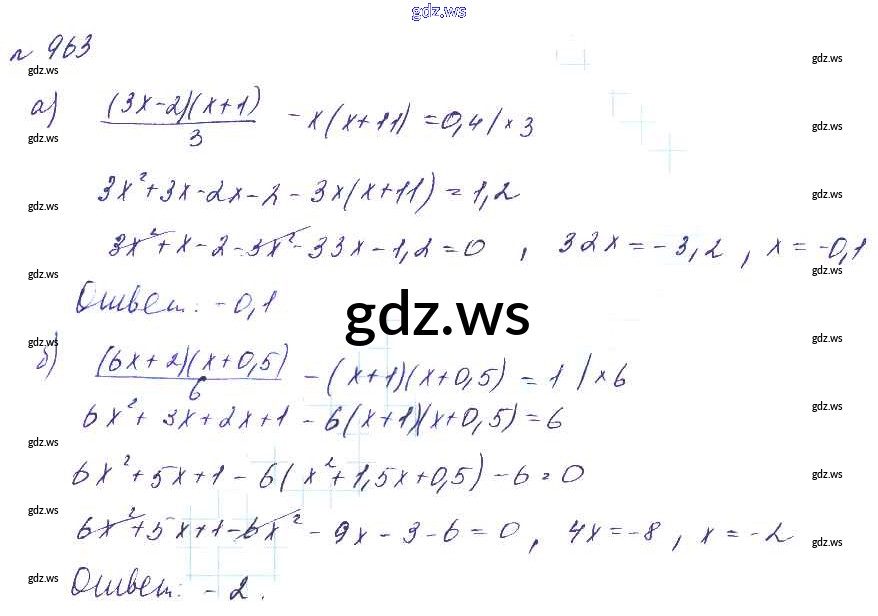 gdz.ws
№ 963
gdz.ws gdz.ws
а) (3x-2)(x+1)/3 - x(x+11) = 0,4 | × 3
gdz.ws gdz.ws
3x² + 3x - 2x - 2 - 3x(x+11) = 1,2
gdz.ws gdz.ws
3x² + x - 2 - 3x² - 33x - 1,2 = 0 , 32x = -3,2 , x = -0,1
gdz.ws gdz.ws
Ответ: -0,1
gdz.ws
gdz.ws gdz.ws
б) (6x+2)(x+0,5)/6 - (x+1)(x+0,5) = 1 | × 6
gdz.ws gdz.ws
6x² + 3x + 2x + 1 - 6(x+1)(x+0,5) = 6
gdz.ws gdz.ws
6x² + 5x + 1 - 6(x² + 1,5x + 0,5) - 6 = 0
gdz.ws gdz.ws
6x² + 5x + 1 - 6x² - 9x - 3 - 6 = 0 , 4x = -8 , x = -2
gdz.ws gdz.ws
Ответ: -2.
gdz.ws gdz.ws